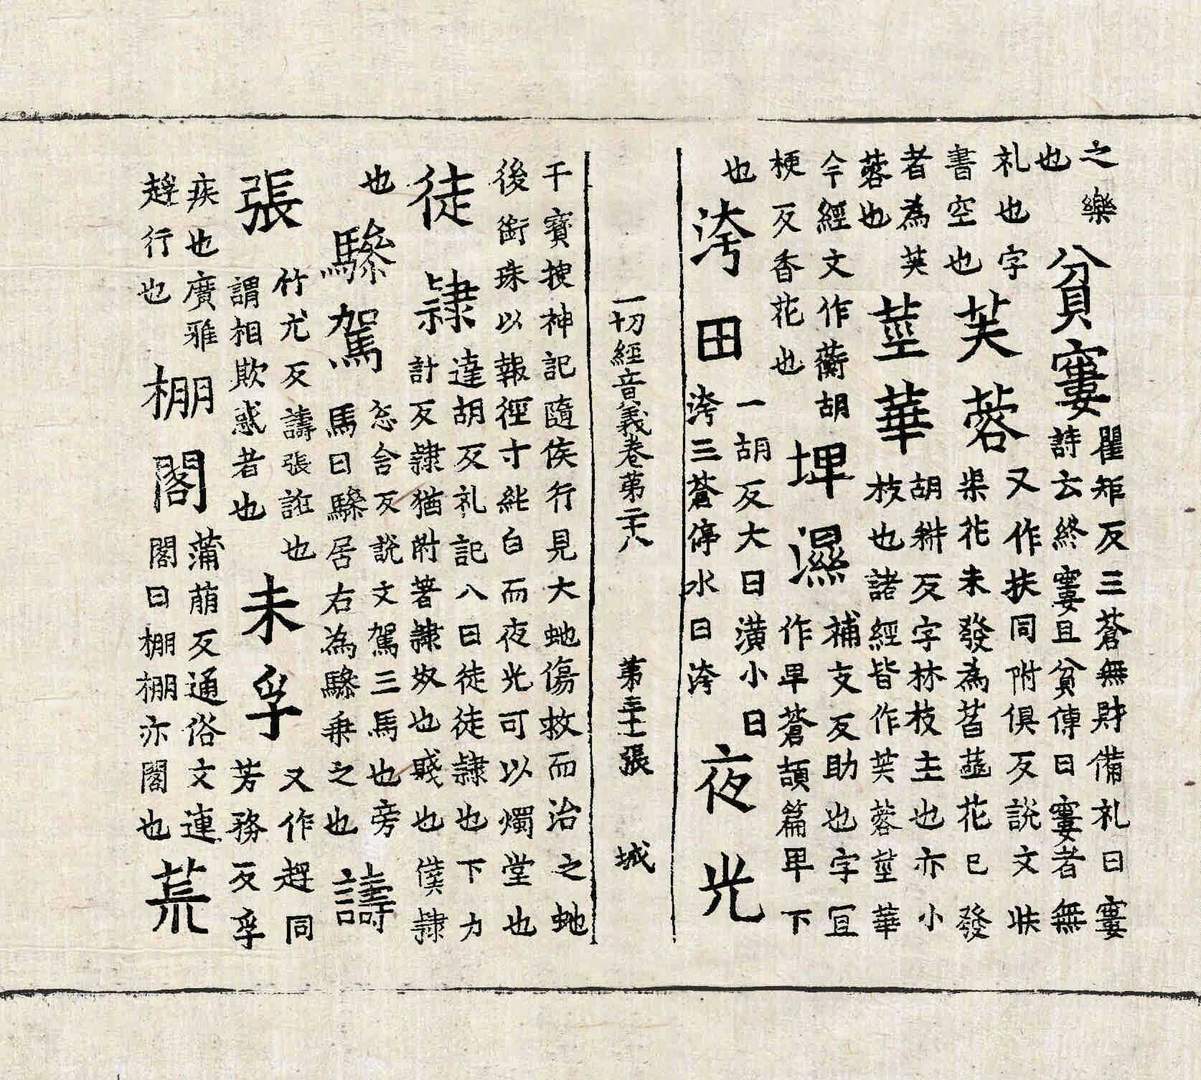 之樂
也
貧窶
瞿矩反三蒼無財備礼曰窶
詩云終窶且貧傳曰窶者無
礼也字
書空也
芙蓉
又作扶同附俱反說文肰
渠花未發為菡花已發
者為芙
蓉也
莖華
胡耕反字林枝主也亦小
枝也諸經皆作芙蓉莖華
今經文作蘅胡
梗反香花也
埤濕
補支反助也字冝
作早蒼頡篇早下
也
洿田
一胡反大曰潢小曰
洿三蒼停水曰洿
夜光
一切經音義卷第二十八 第三十二張 城
干寶搜神記隨侯行見大虵傷救而治之虵
後銜珠以報徑寸純白而夜光可以燭堂也
徒隸
達胡反礼記八曰徒徒隸也下力
計反隸猶附著隸奴也賤也僕隸
也
驂駕
忩含反說文駕三馬也旁
馬曰驂居右為驂乗之也
譸
張
竹尤反譸張誑也
謂相欺惑者也
未孚
又作趕同
芳務反孚
疾也廣雅
趕行也
棚閣
蒲萠反通俗文連
閣曰棚棚亦閣也
荒